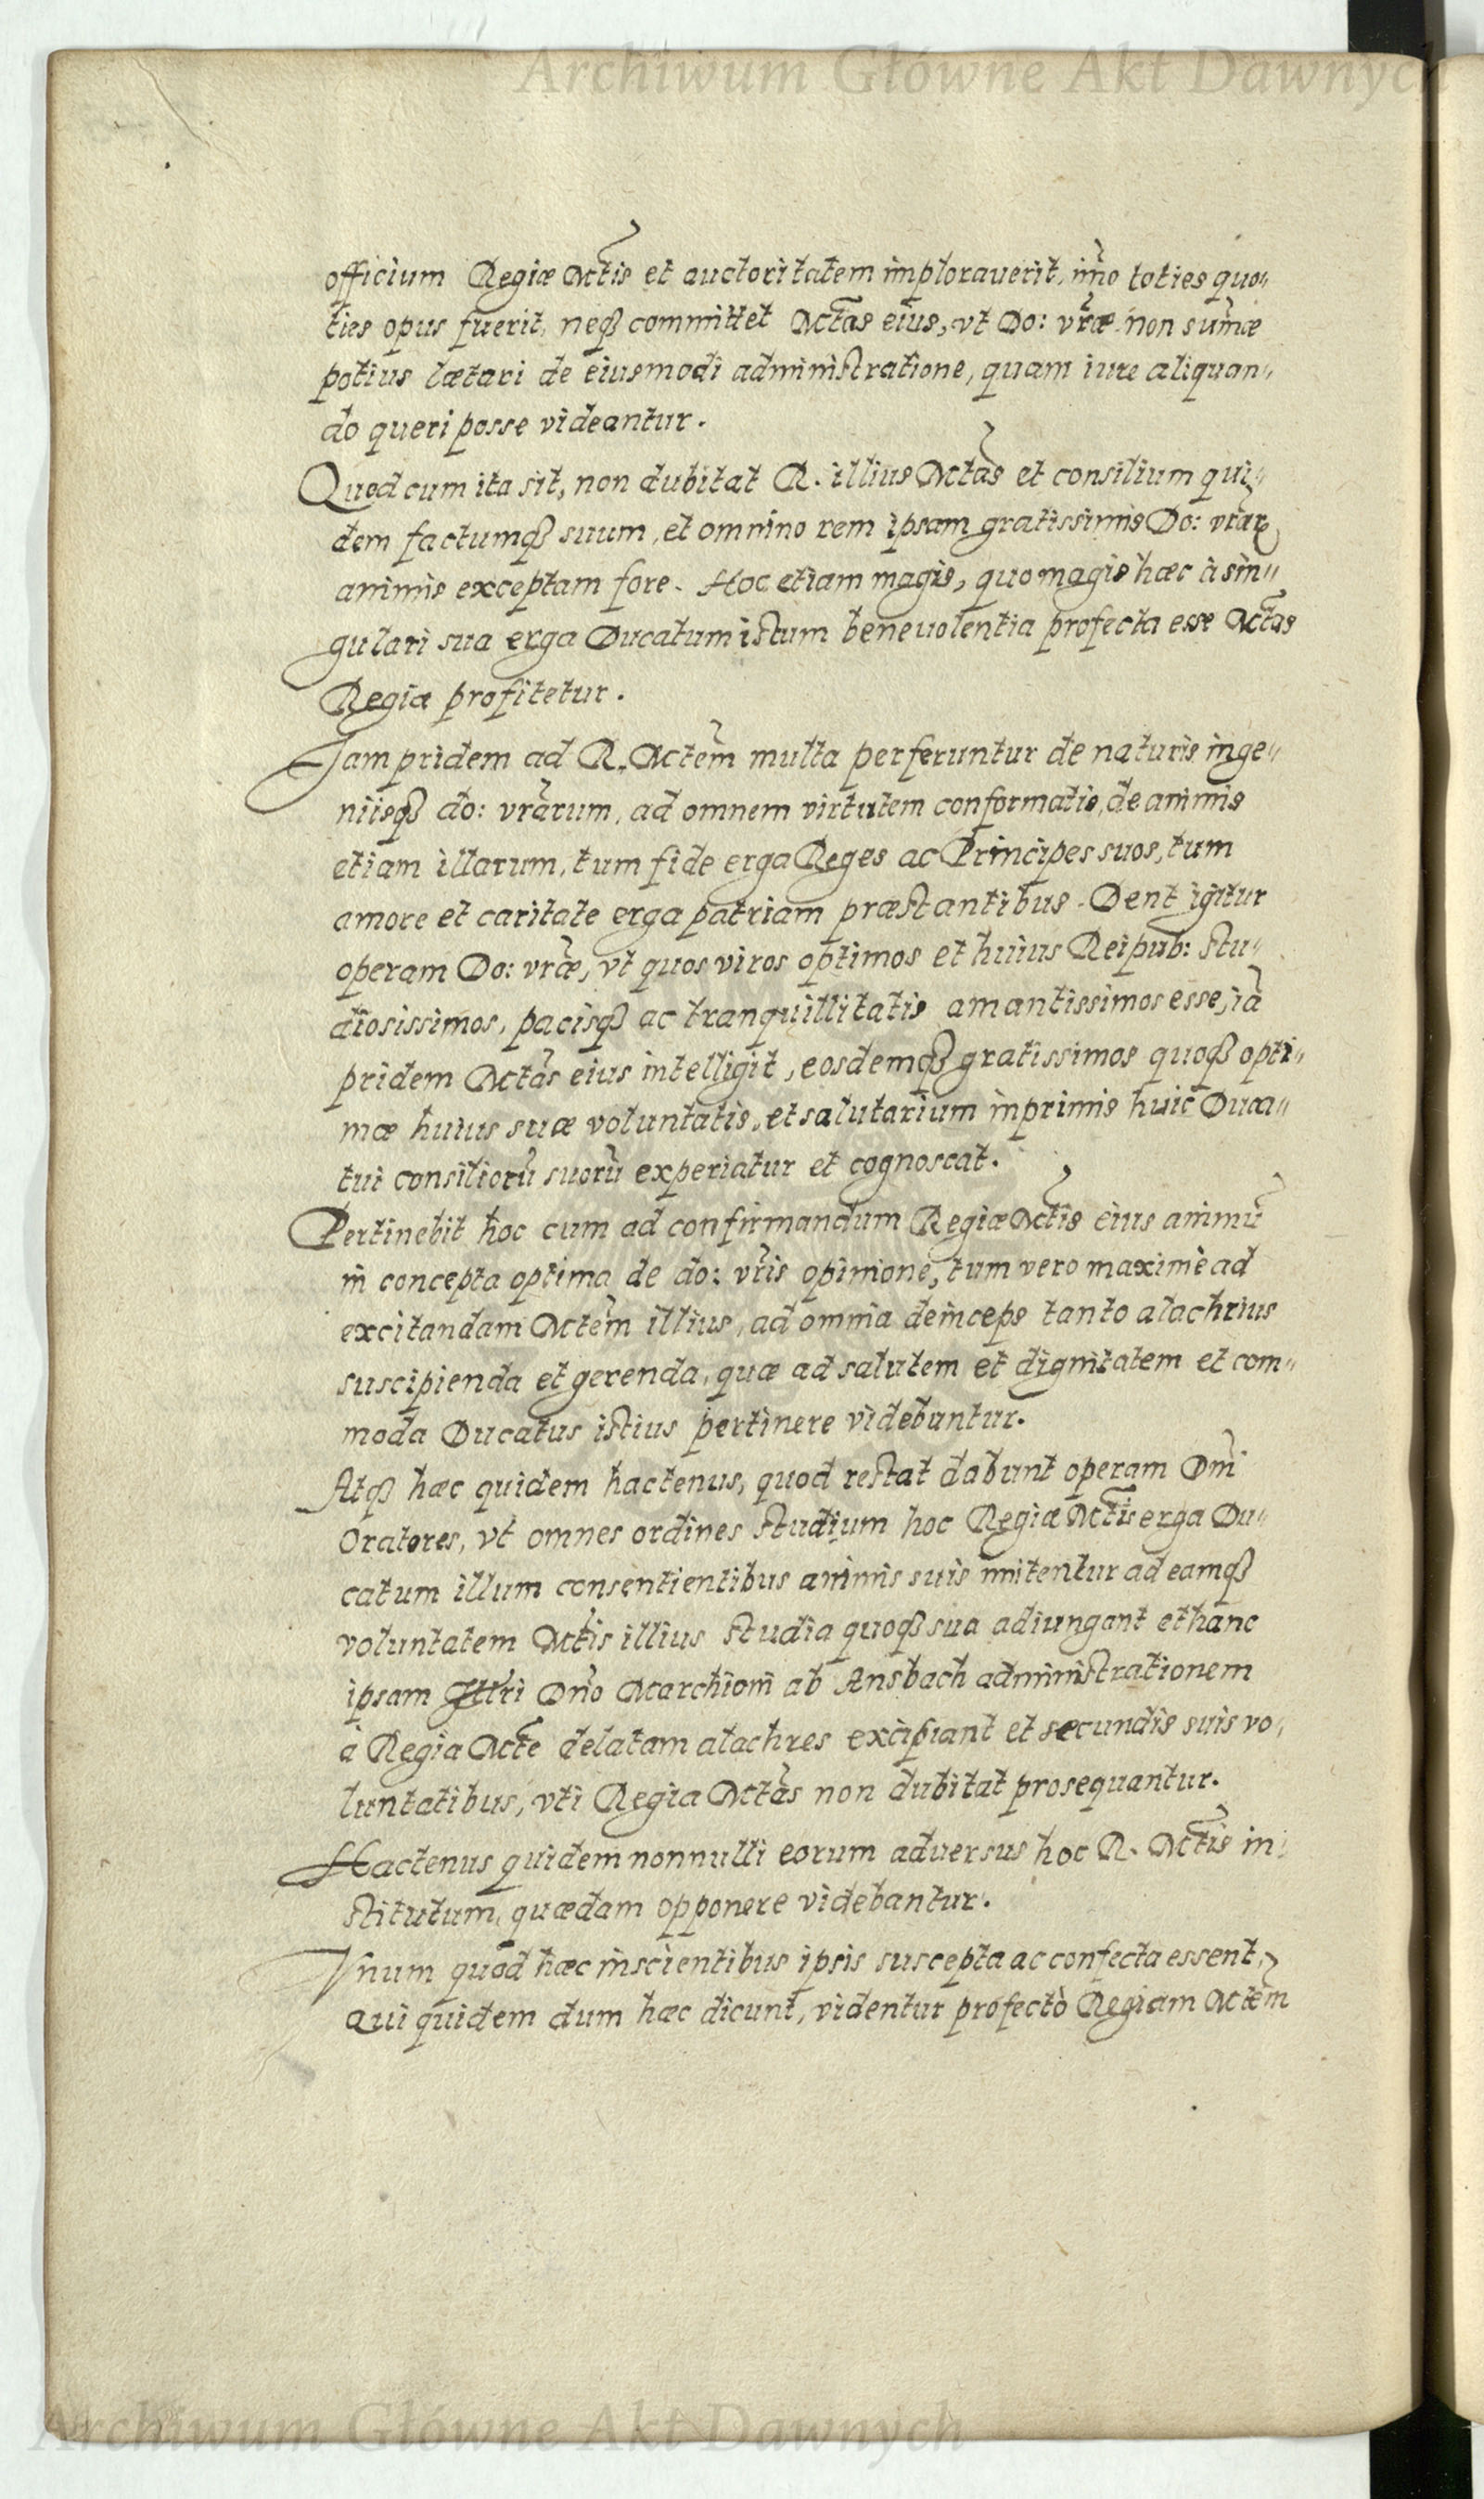 Archiwum Główne Akt Dawnych
officium Regiæ Mtis et auctoritatem imploraverit, imo toties quo„
ties opus fuerit, neqꝫ committet Mtas eius, vt Do: vræ non sumæ
potius lætari de eiusmodi administratione, quam iure aliquan„
do queri posse videantur.
Quod cum ita sit, non dubitat R. illius Mtas et consilium qui„
dem factumqꝫ suum, et omnino rem ipsam gratissimis Do: vrar
animis exceptam fore. Hoc etiam magis, quo magis hæc à sin„
gulari sua erga Ducatum istum beneuolentia profecta esse Mtas
Regia profitetur.
Jam pridem ad R. Mtem multa perferuntur de naturis inge„
niisqꝫ do: vrarum, ad omnem virtutem conformatis, de animis
etiam illarum, tum fide erga Reges ac Principes suos, tum
amore et caritate erga patriam præstantibus. Dent igitur
operam Do: vræ, vt quos viros optimos et huius Reipub: stu„
diosissimos, pacisqꝫ ac tranquillitatis amantissimos esse, iã
pridem Mtas eius intelligit, eosdemqꝫ gratissimos quoqꝫ opti„
mæ huius suæ voluntatis, et salutarium inprimis huic Duca„
tui consiliorũ suorũ experiatur et cognoscat.
Pertinebit hoc cum ad confirmandum Regiæ Mtis eius animũ
in concepta optima de do: vris opinione, tum vero maximè ad
excitandam Mtem illius, ad omnia deinceps tanto alachrius
suscipienda et gerenda, quæ ad salutem et dignitatem et com„
moda Ducatus istius pertinere videbuntur.
Atqꝫ hæc quidem hactenus, quod restat dabunt operam Dni
Oratores, vt omnes ordines studium hoc Regiæ Mtis erga Du„
catum illum consentientibus animis suis imitentur ad eamqꝫ
voluntatem Mtis illius studia quoqꝫ sua adiungant et hanc
ipsam Illri Dno Marchioni ab Ansbach administrationem
à Regia Mte delatam alachres excipiant et secundis suis vo„
luntatibus, vti Regia Mtas non dubitat prosequantur.
Hactenus quidem nonnulli eorum adversus hoc R. Mtis in„
stitutum, quædam opponere videbantur.
Vnum quod hæc inscientibus ipsis suscepta ac confecta essent,
Qui quidem dum hæc dicunt, videntur profectò Regiam Mtem
Archiwum Główne Akt Dawnych